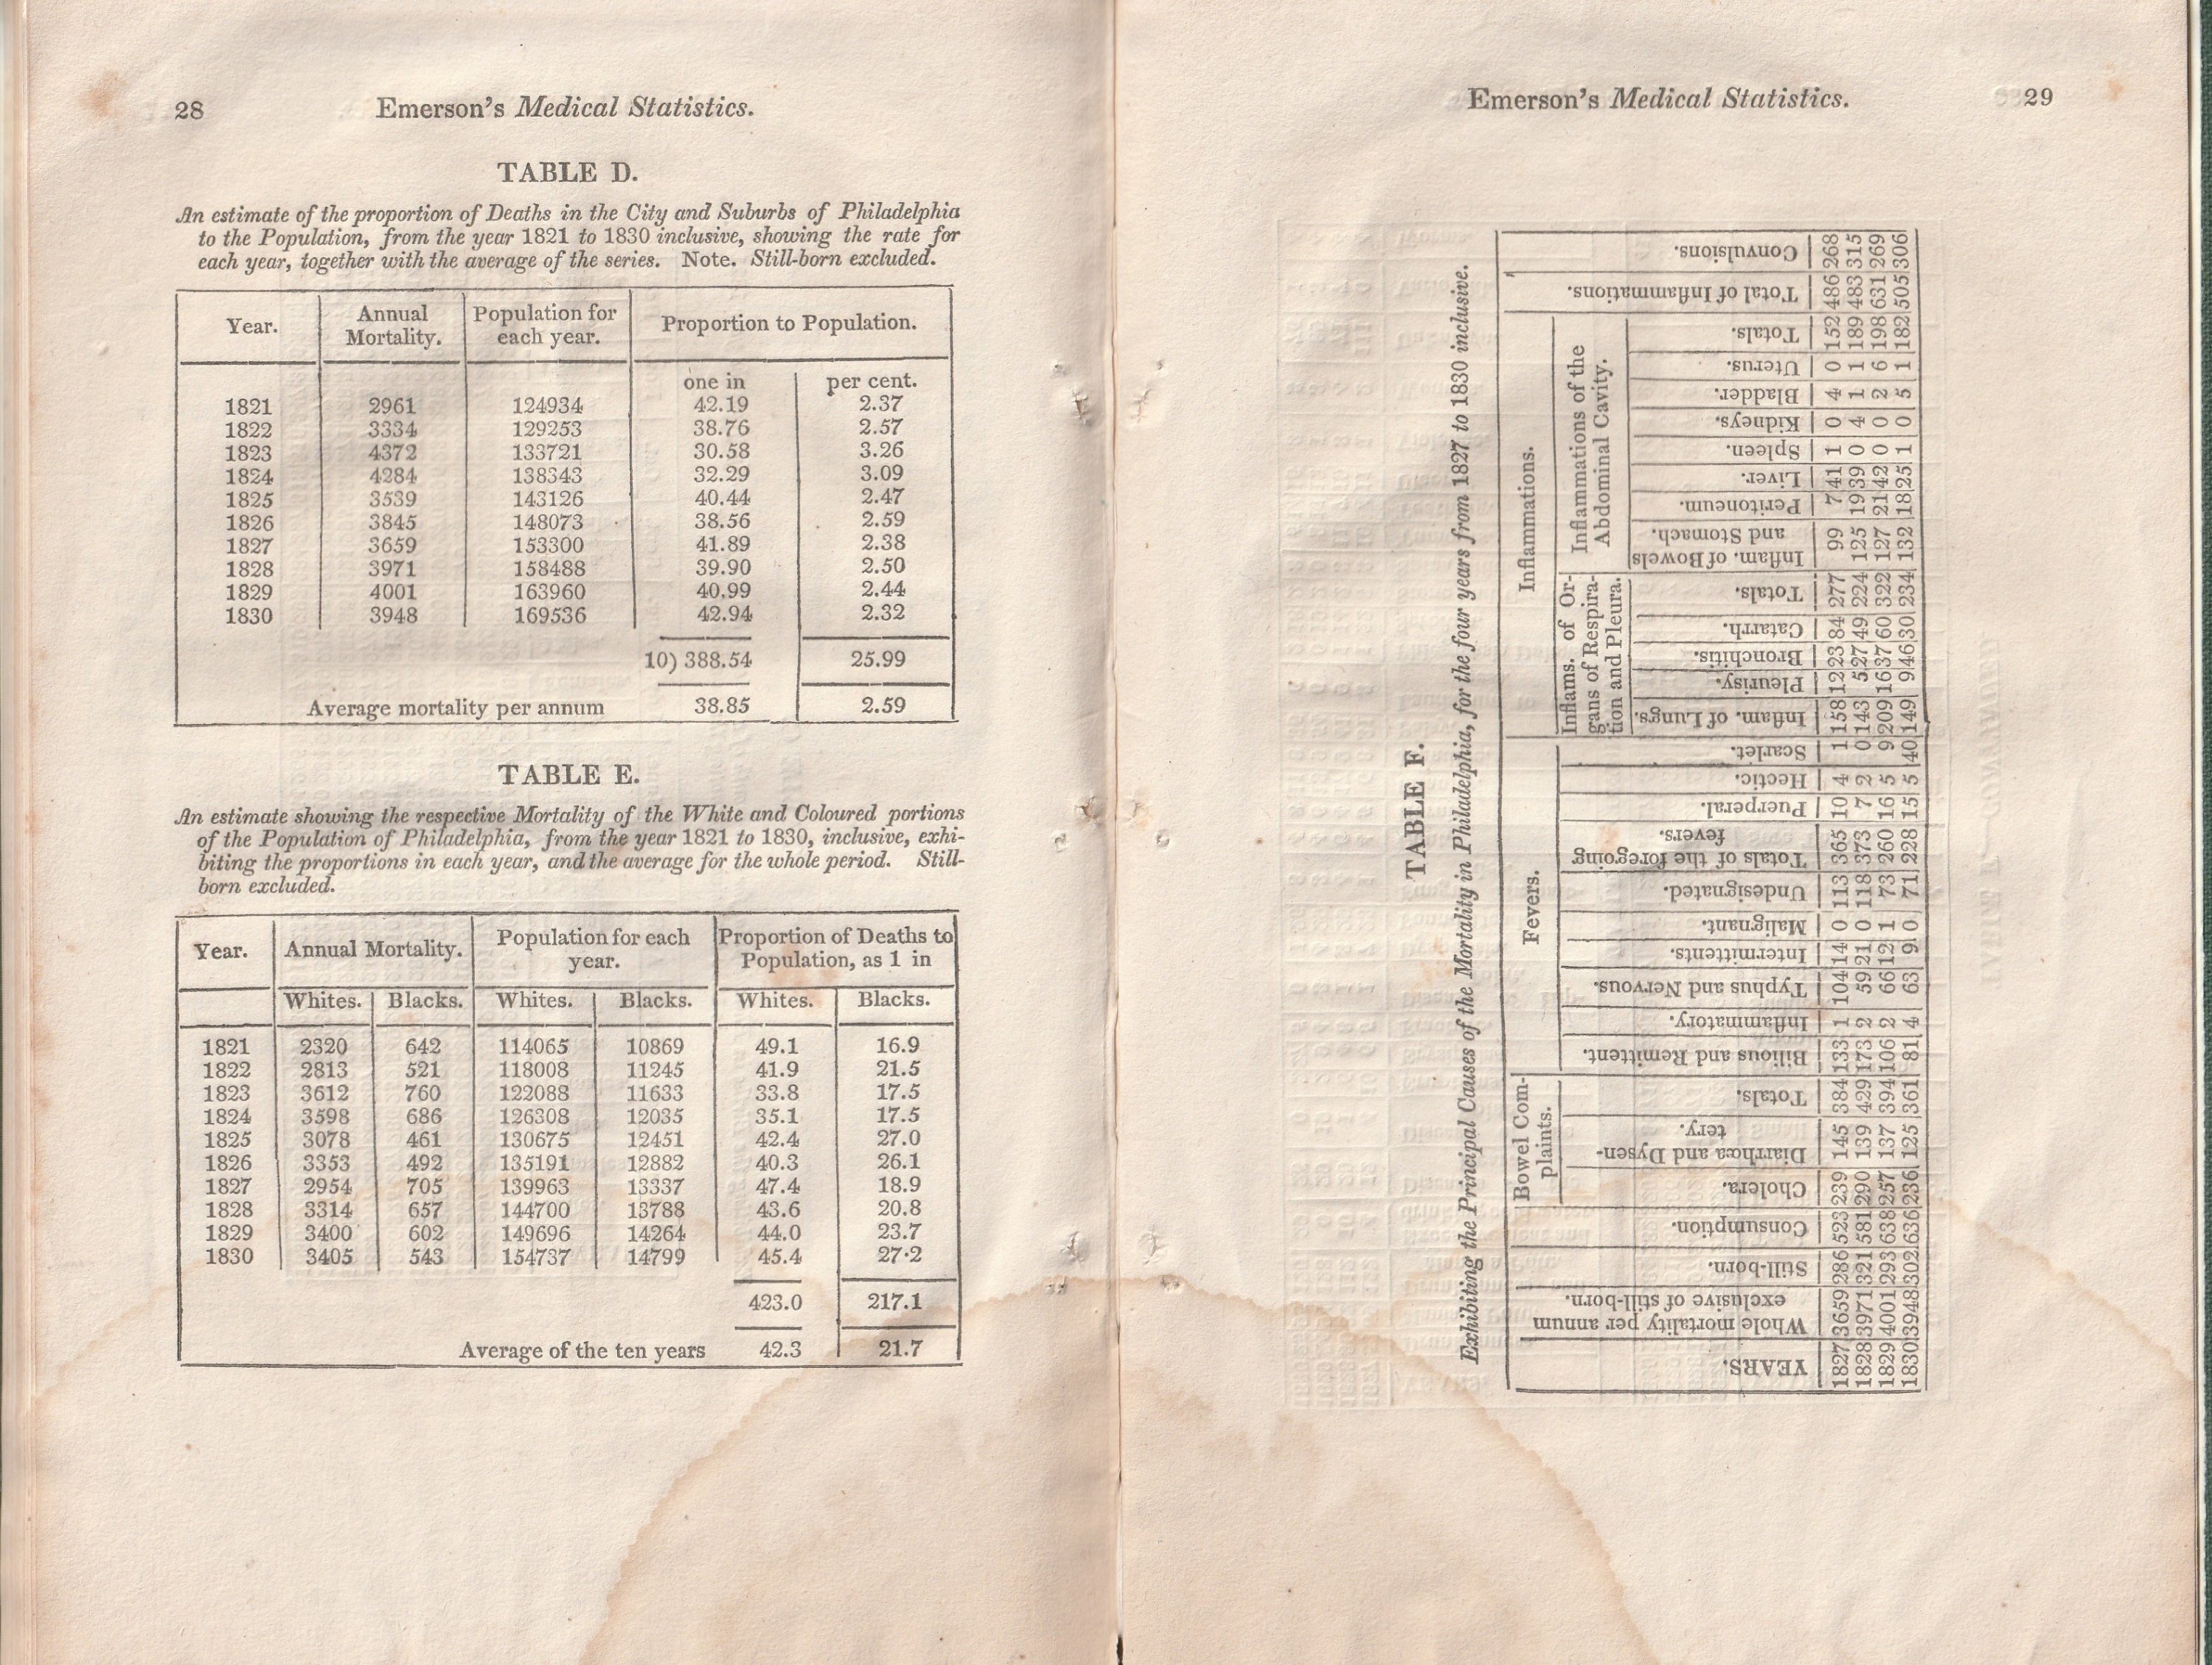 28
Emerson's Medical Statistics.
TABLE D.
An estimate of the proportion of Deaths in the City and Suburbs of Philadelphia
to the Population, from the year 1821 to 1830 inclusive, showing the rate for
each year, together with the average of the series. Note. Still-born excluded.
Year. Annual Mortality. Population for each year. Proportion to Population.
one in per cent.
1821 2961 124934 42.19 2.37
1822 3334 129253 38.76 2.57
1823 4372 133721 30.58 3.26
1824 4284 138343 32.29 3.09
1825 3539 143126 40.44 2.47
1826 3845 148073 38.56 2.59
1827 3659 153300 41.89 2.38
1828 3971 158488 39.90 2.50
1829 4001 163960 40.99 2.44
1830 3948 169536 42.94 2.32
10) 388.54 25.99
Average mortality per annum 38.85 2.59
TABLE E.
An estimate showing the respective Mortality of the White and Coloured portions
of the Population of Philadelphia, from the year 1821 to 1830, inclusive, exhi-
biting the proportions in each year, and the average for the whole period. Still-
born excluded.
Year. Annual Mortality. Population for each year. Proportion of Deaths to Population, as 1 in
Whites. Blacks. Whites. Blacks. Whites. Blacks.
1821 2320 642 114065 10869 49.1 16.9
1822 2813 521 118008 11245 41.9 21.5
1823 3612 760 122088 11633 33.8 17.5
1824 3598 686 126308 12035 35.1 17.5
1825 3078 461 130675 12451 42.4 27.0
1826 3353 492 135191 12882 40.3 26.1
1827 2954 705 139963 13337 47.4 18.9
1828 3314 657 144700 13788 43.6 20.8
1829 3400 602 149696 14264 44.0 23.7
1830 3405 543 154737 14799 45.4 27·2
423.0 217.1
Average of the ten years 42.3 21.7
Emerson's Medical Statistics.
29
TABLE F.
Exhibiting the Principal Causes of the Mortality in Philadelphia, for the four years from 1827 to 1830 inclusive.
Bowel Com-
plaints.
Fevers.
Inflammations.
Inflams. of Or-
gans of Respira-
tion and Pleura.
Inflammations of the
Abdominal Cavity.
YEARS.
Whole mortality per annum
exclusive of still-born.
Still-born.
Consumption.
Cholera.
Diarrhœa and Dysen-
tery.
Totals.
Bilious and Remittent.
Inflammatory.
Typhus and Nervous.
Intermittents.
Malignant.
Undesignated.
Totals of the foregoing
fevers.
Puerperal.
Hectic.
Scarlet.
Inflam. of Lungs.
Pleurisy.
Bronchitis.
Catarrh.
Totals.
Inflam. of Bowels
and Stomach.
Peritoneum.
Liver.
Spleen.
Kidneys.
Bladder.
Uterus.
Totals.
Total of Inflammations.
Convulsions.
1827 3659 286 523 239 145 384 133 1 104 14 0 113 365 10 4 1 158 12 23 84 277 99 7 41 1 0 4 0 152 486 268
1828 3971 321 581 290 139 429 173 2 59 21 0 118 373 7 2 0 143 5 27 49 224 125 19 39 0 4 1 1 189 483 315
1829 4001 293 638 257 137 394 106 2 66 12 1 73 260 16 5 9 209 16 37 60 322 127 21 42 0 0 2 6 198 631 269
1830 3948 302 636 236 125 361 81 4 63 9 0 71 228 15 5 40 149 9 46 30 234 132 18 25 1 0 5 1 182 505 306